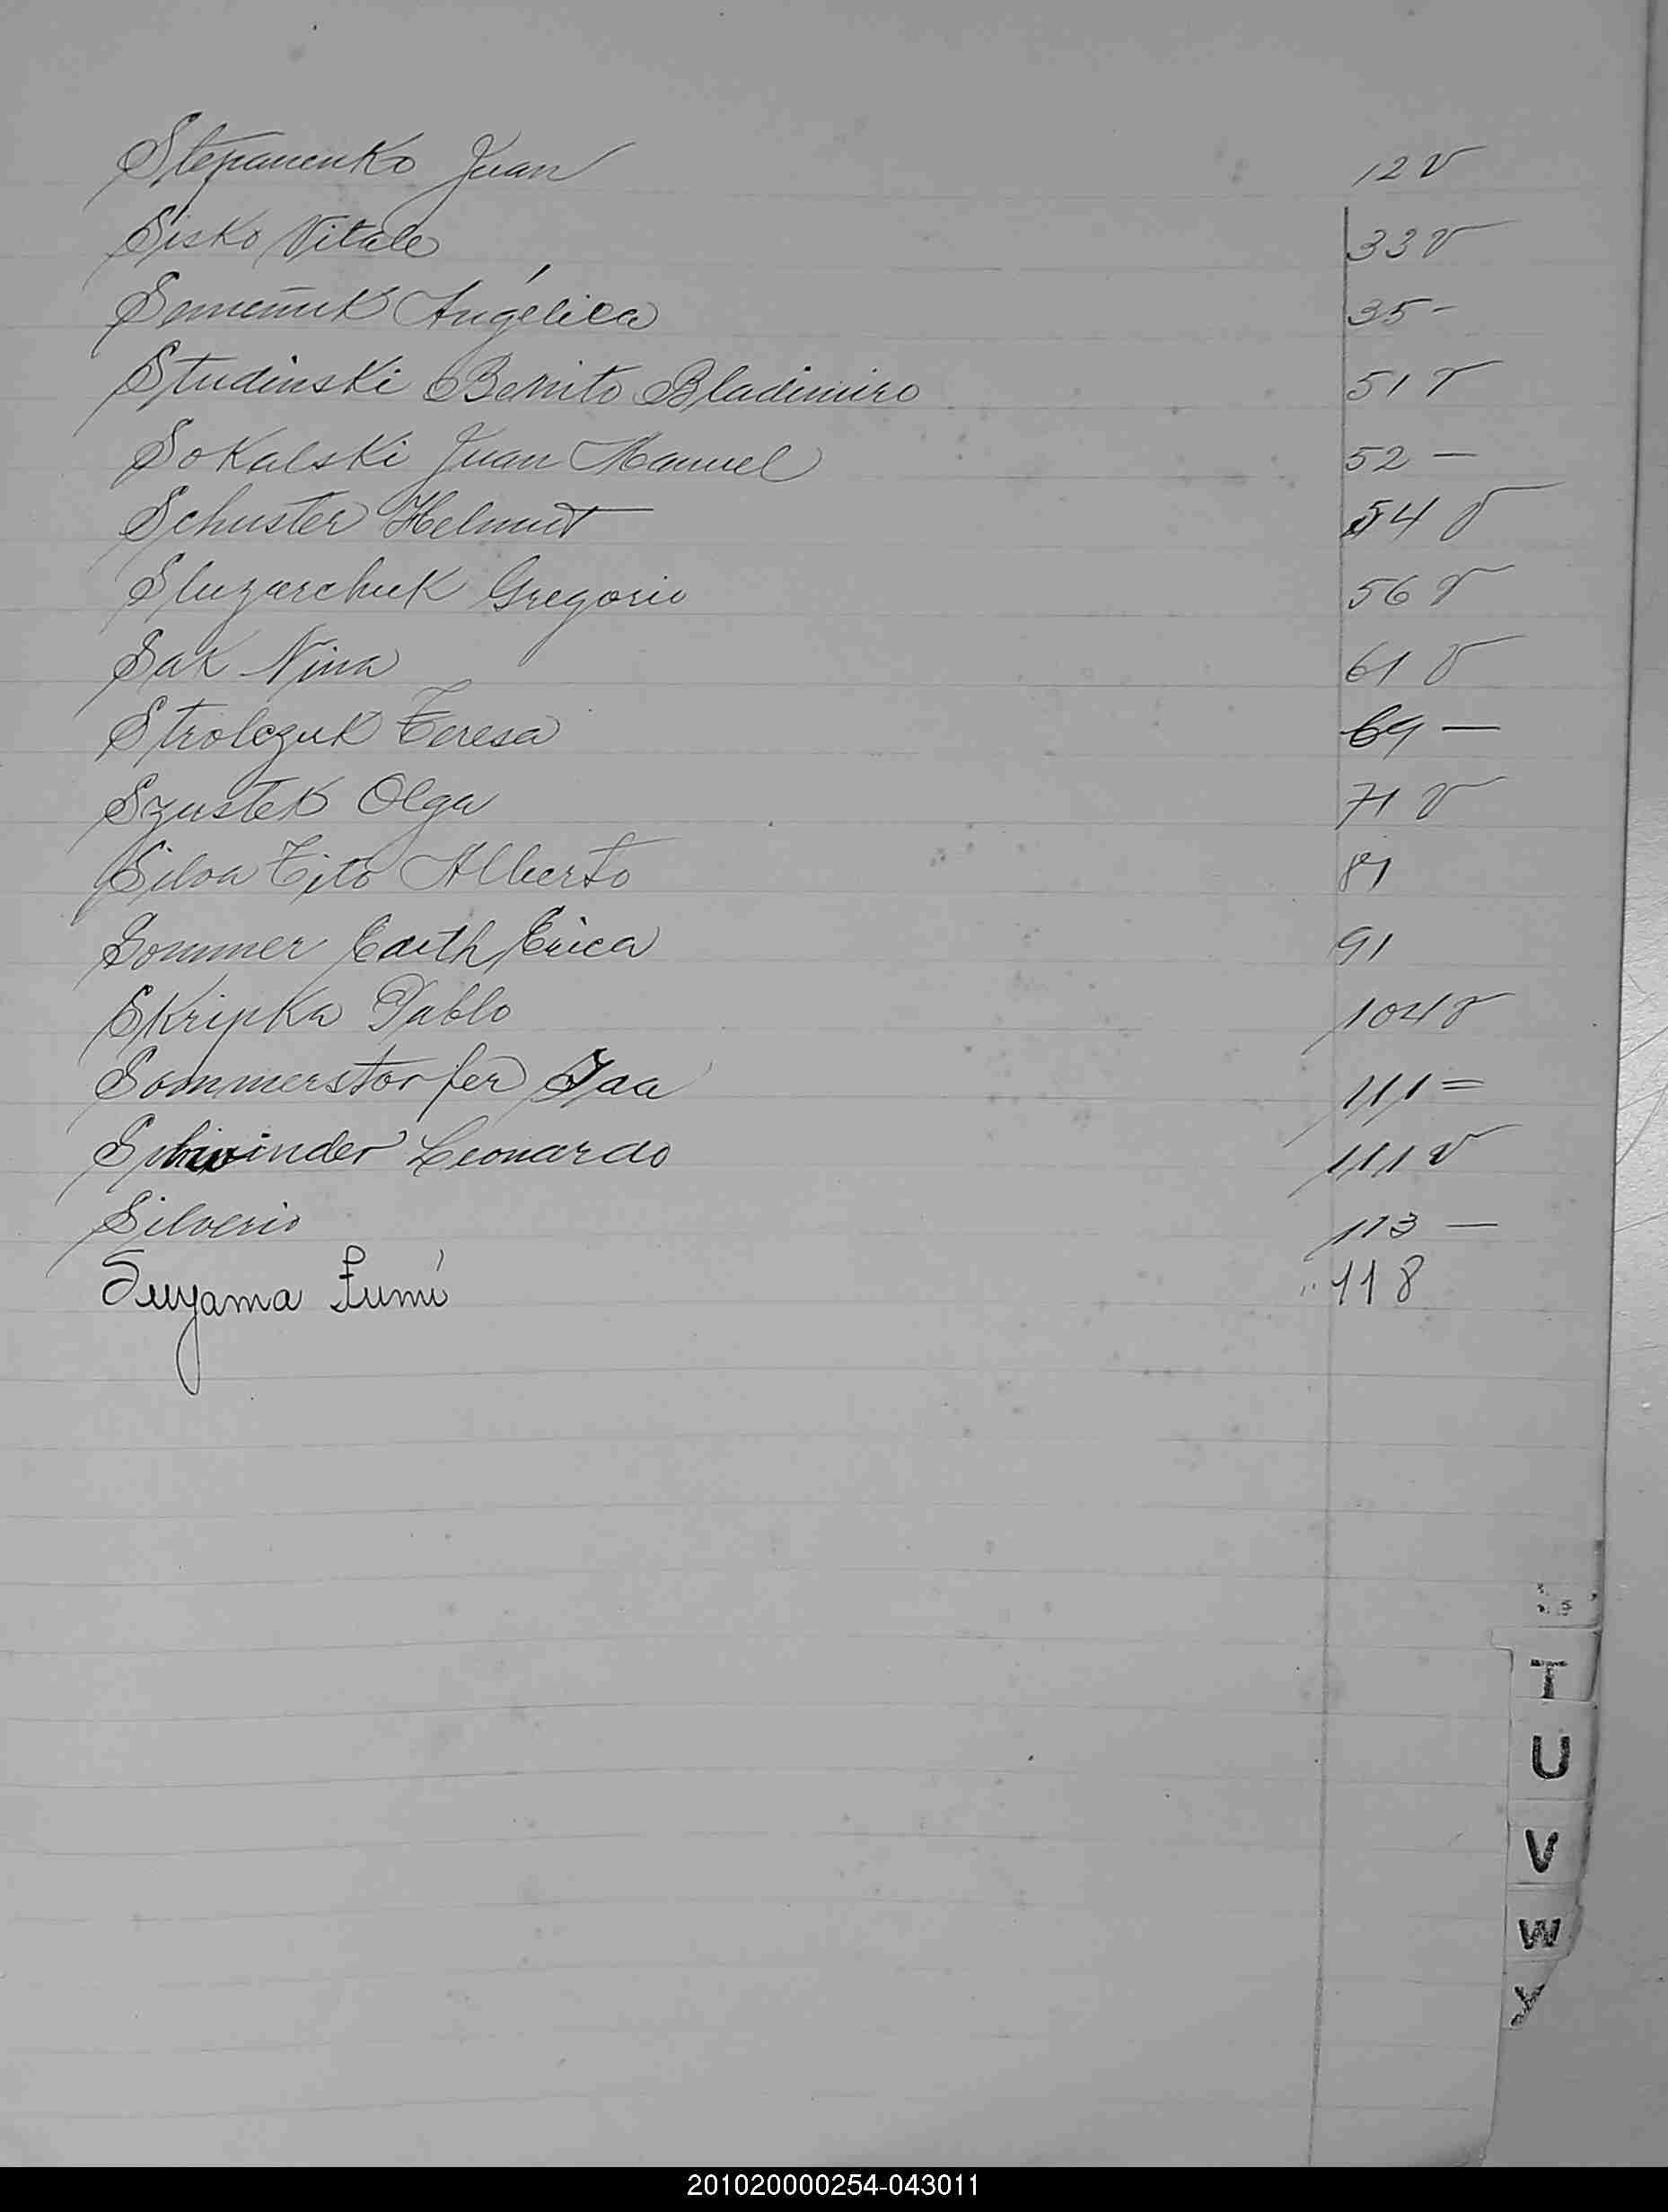 Stepanenko Juan 12 v
Sisko Vitale 33 v
Semeñuk Angélica 35 -
Studinski Benito Bladimiro 51 v
Sokalski Juan Manuel 52 —
Schuster Helmut 54 v
Sluzarchuk Gregorio 56 v
Sak Nina 61 v
Strolczuk Teresa 69 —
Szustek Olga 71 v
Silva Tito Alberto 81
Sommer Edith Erica 91
Skripka Pablo 104 v
Sommerstorfer Ida 111 =
Schwinder Leonardo 111 v
Silverio 113 —
Suyama Fumi 118
T
U
V
W
Y
201020000254-043011